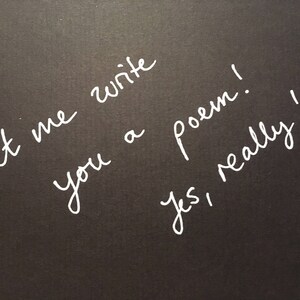 et me write
you a poem!
Yes, really!